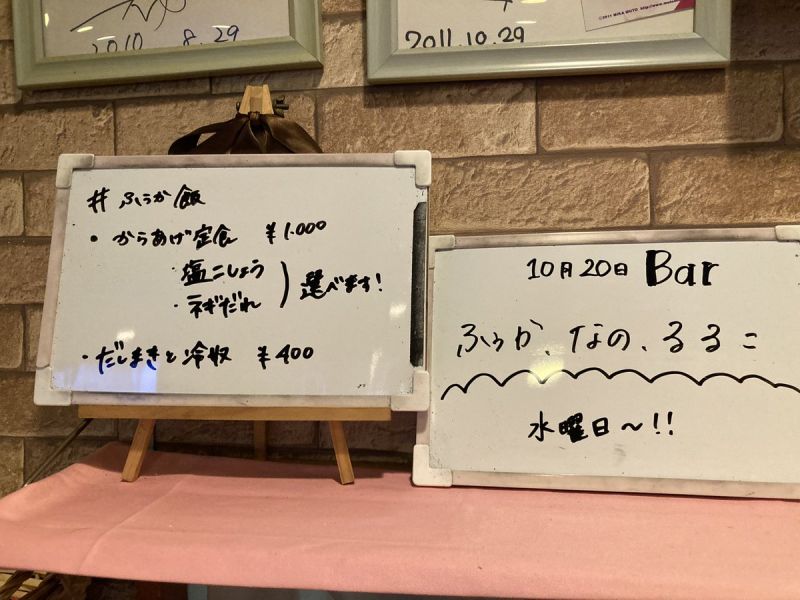 2010 8.29
2011.10.29
#ふうか飯
・からあげ定食 ¥1.000
・塩こしょう
・ネギだれ
選べます!
・だしまきと冷奴 ¥400
10月20日 Bar
ふうか、なの、るるこ
水曜日〜!!